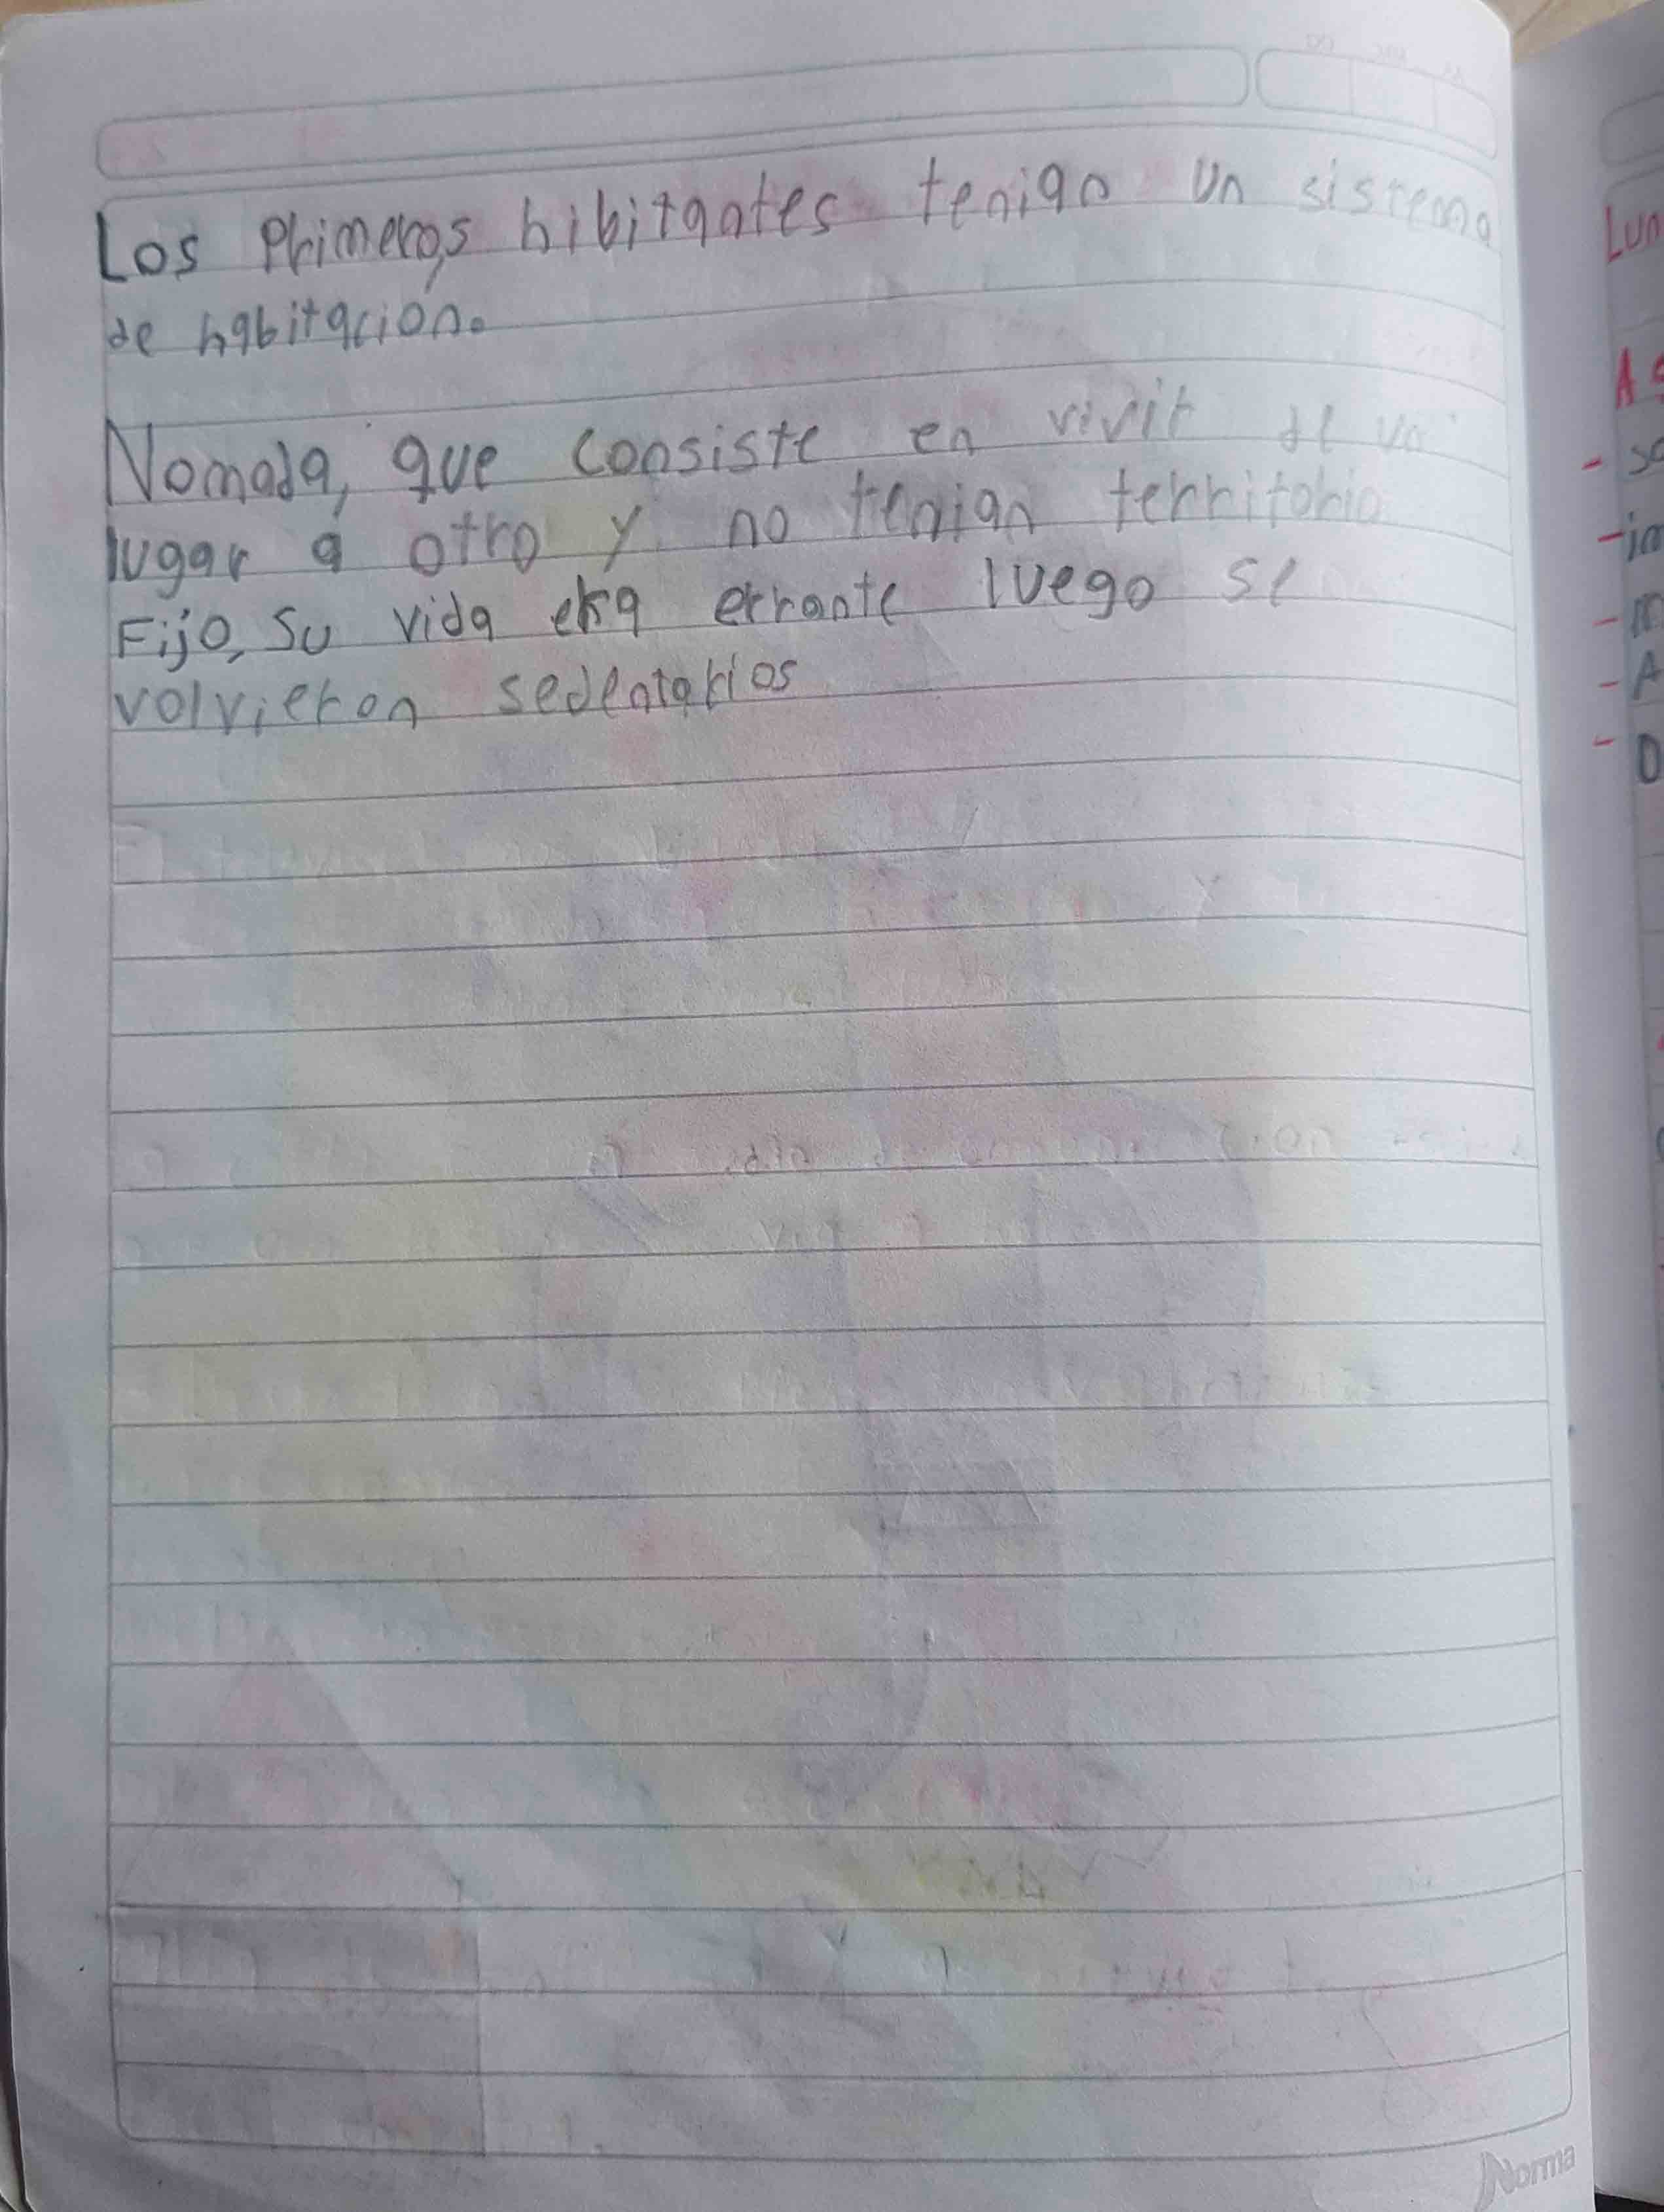 Los Primeros hibitantes tenian un sistema
de habitacion.
Nomada, que consiste en vivir de un
lugar a otro y no tenian territorio
Fijo, Su vida era errante luego se
volvieron sedentarios
Norma
Lun
A
- so
- in
- m
- A
- D